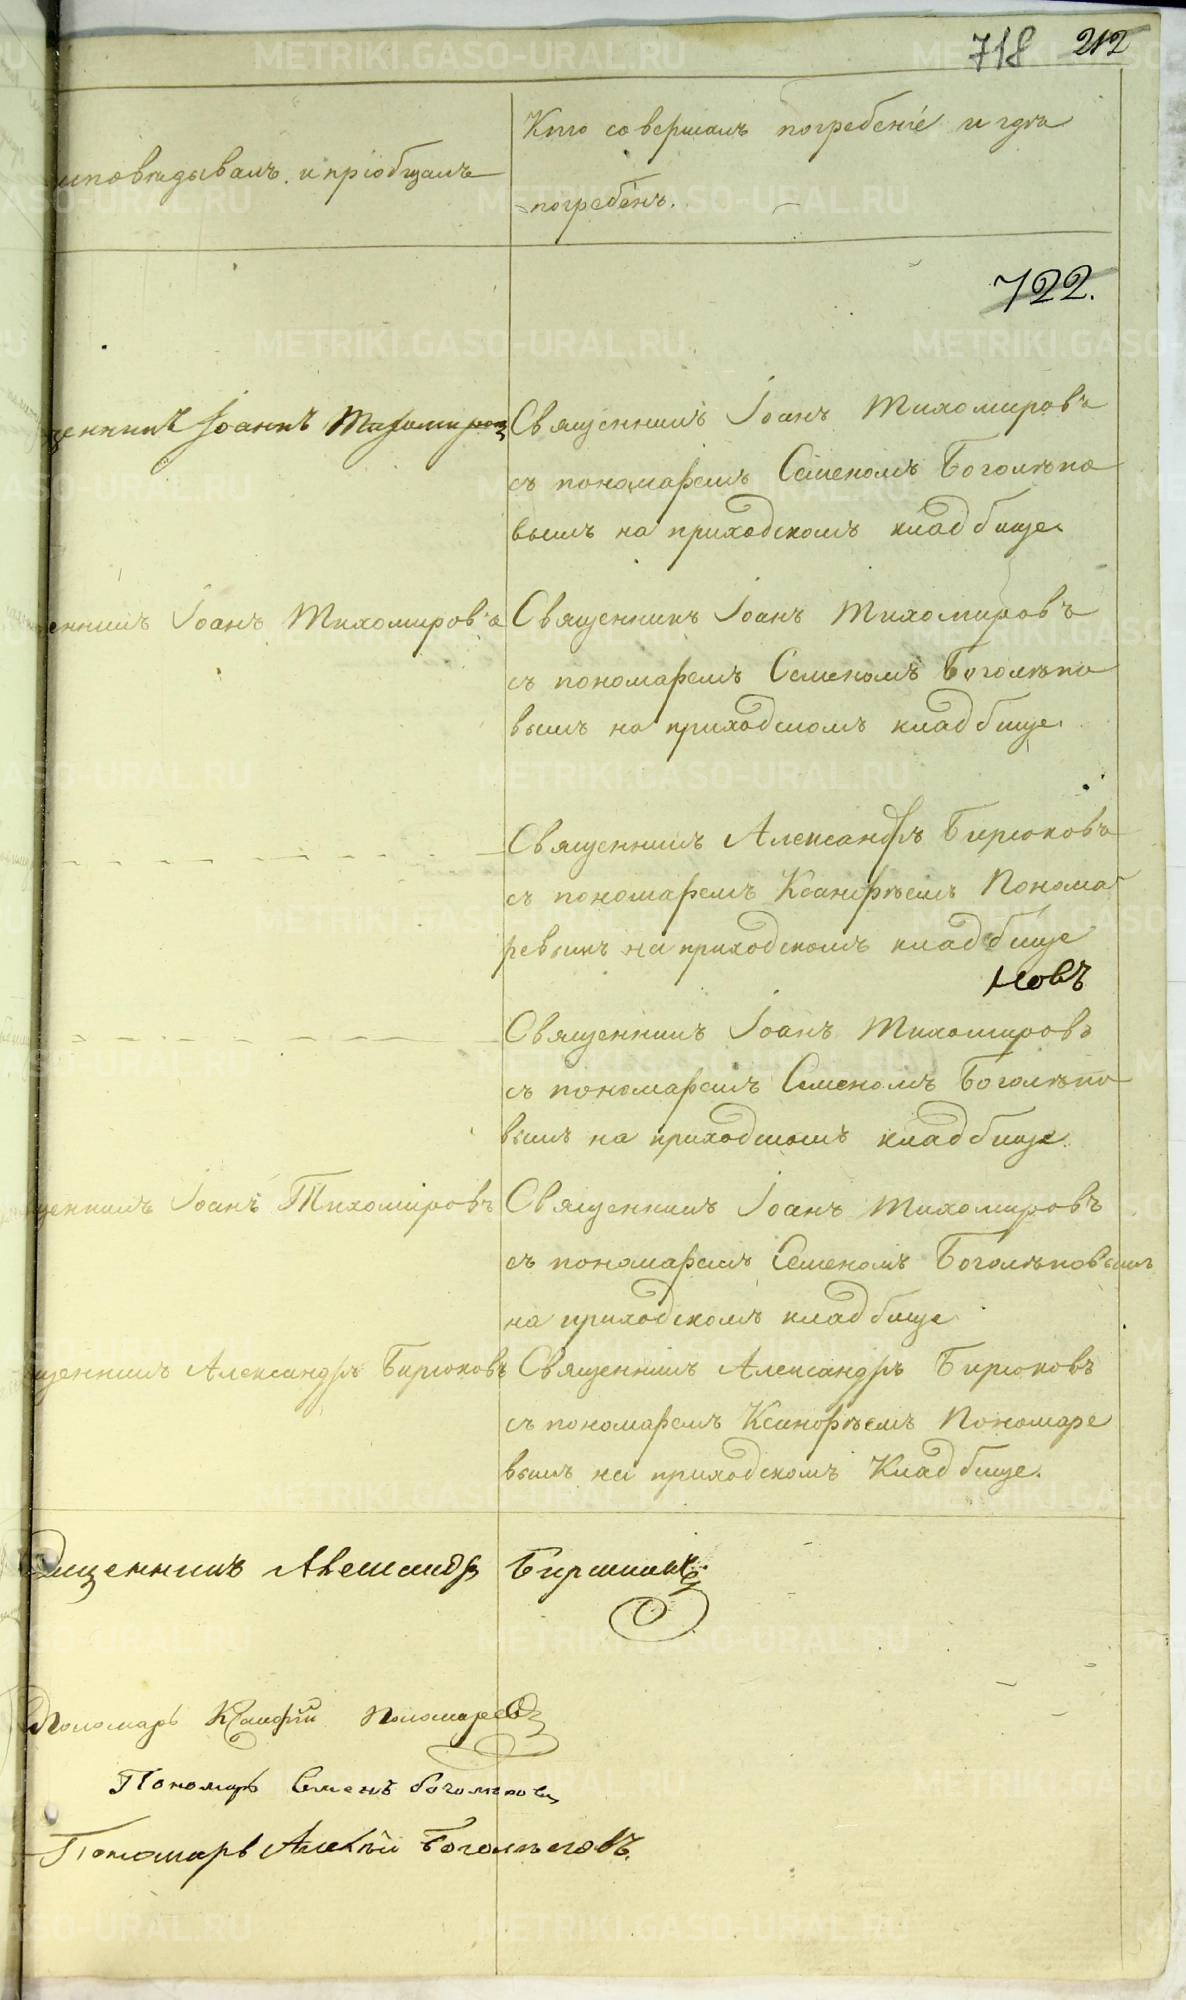 718 212
Кто совершалъ погребеніе и гдѣ
исповѣдывалъ и пріобщалъ
погребенъ.
722.
щенникъ Іоаннъ Тихомировъ
Священникъ Іоанъ Тихомировъ
съ пономаремъ Семеномъ Боголѣпо
вымъ на приходскомъ кладбище.
енникъ Іоанъ Тихомировъ
Священникъ Іоанъ Тихомировъ
съ пономаремъ Семеномъ Боголѣпо
вымъ на приходскомъ кладбище.
Священникъ Александръ Бирюковъ
съ пономаремъ Ксанфіемъ Понома
ревымъ на приходскомъ кладбище
новъ
Священникъ Іоанъ Тихомировъ
съ пономаремъ Семеномъ Боголѣпо
вымъ на приходскомъ кладбище.
щенникъ Іоанъ Тихомировъ
Священникъ Іоанъ Тихомировъ
съ пономаремъ Семеномъ Боголѣповымъ
на приходскомъ кладбище
щенникъ Александръ Бирюковъ
Священникъ Александръ Бирюковъ
съ пономаремъ Ксанофіемъ Пономаре
вымъ на приходскомъ Кладбище.
Священникъ Александръ Бирюковъ
Пономарь Ксанфій Пономаревъ
Пономарь Семенъ Боголѣповъ
Пономарь Алексѣй Боголѣповъ.
METRIKI.GASO-URAL.RU